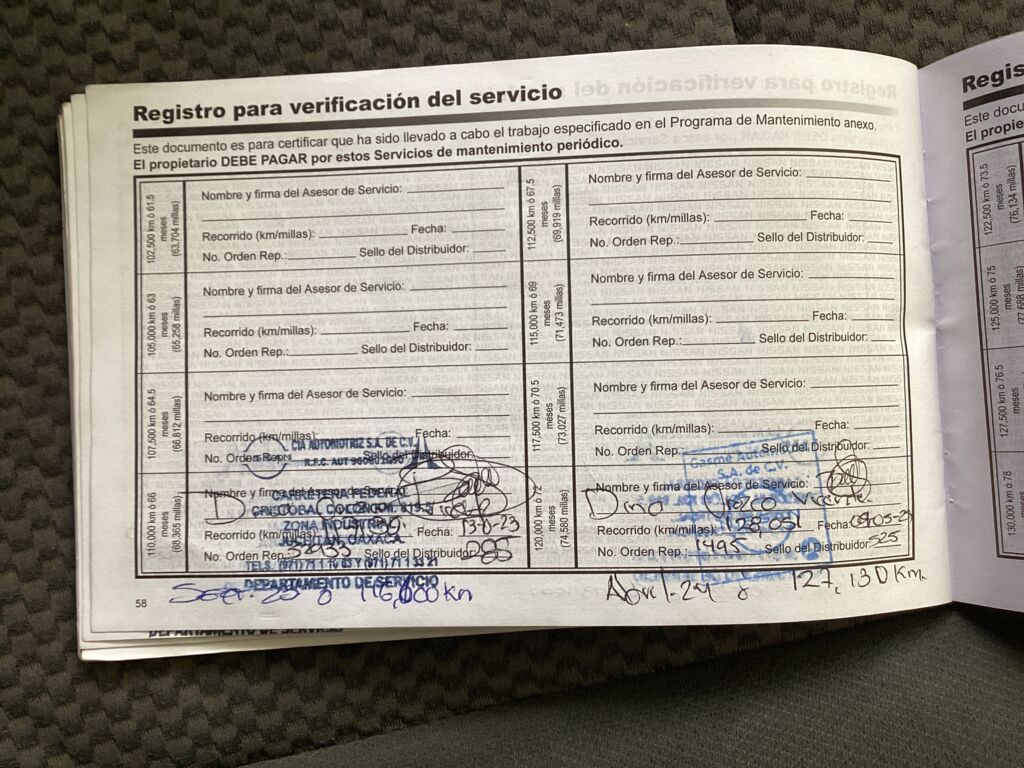 Registro para verificación del servicio
Este documento es para certificar que ha sido llevado a cabo el trabajo especificado en el Programa de Mantenimiento anexo.
El propietario DEBE PAGAR por estos Servicios de mantenimiento periódico.
102,500 km ó 61.5
meses
(63,704 millas)
Nombre y firma del Asesor de Servicio:
Recorrido (km/millas): Fecha:
No. Orden Rep.: Sello del Distribuidor:
105,000 km ó 63
meses
(65,258 millas)
Nombre y firma del Asesor de Servicio:
Recorrido (km/millas): Fecha:
No. Orden Rep.: Sello del Distribuidor:
107,500 km ó 64.5
meses
(66,812 millas)
Nombre y firma del Asesor de Servicio:
Recorrido (km/millas): Fecha:
No. Orden Rep.: Sello del Distribuidor:
CIA AUTOMOTRIZ S.A. DE C.V.
110,000 km ó 66
meses
(68,365 millas)
Nombre y firma del Asesor de Servicio:
CARRETERA FEDERAL
CRISTOBAL COLON
ZONA INDUSTRIAL
Recorrido (km/millas): Fecha:
JUCHITAN, OAXACA
No. Orden Rep. Sello del Distribuidor: 285
DEPARTAMENTO DE SERVICIO
116,000 Km
58
112,500 km ó 67.5
meses
(69,919 millas)
Nombre y firma del Asesor de Servicio:
Recorrido (km/millas): Fecha:
No. Orden Rep.: Sello del Distribuidor:
115,000 km ó 69
meses
(71,473 millas)
Nombre y firma del Asesor de Servicio:
Recorrido (km/millas): Fecha:
No. Orden Rep.: Sello del Distribuidor:
117,500 km ó 70.5
meses
(73,027 millas)
Nombre y firma del Asesor de Servicio:
Recorrido (km/millas): Fecha:
No. Orden Rep.: Sello del Distribuidor:
S.A. de C.V.
120,000 km ó 72
meses
(74,580 millas)
Nombre y firma del Asesor de Servicio:
Orozco Vicente
Recorrido (km/millas): 128,051 Fecha:
No. Orden Rep.: 1495 Sello del Distribuidor: 525
Abril-24 127,130 Km.
Regis
Este docu
El propie
122,500 km ó 73.5
meses
(76,134 millas)
125,000 km ó 75
meses
(77,688 millas)
127,500 km ó 76.5
meses
130,000 km ó 78
meses